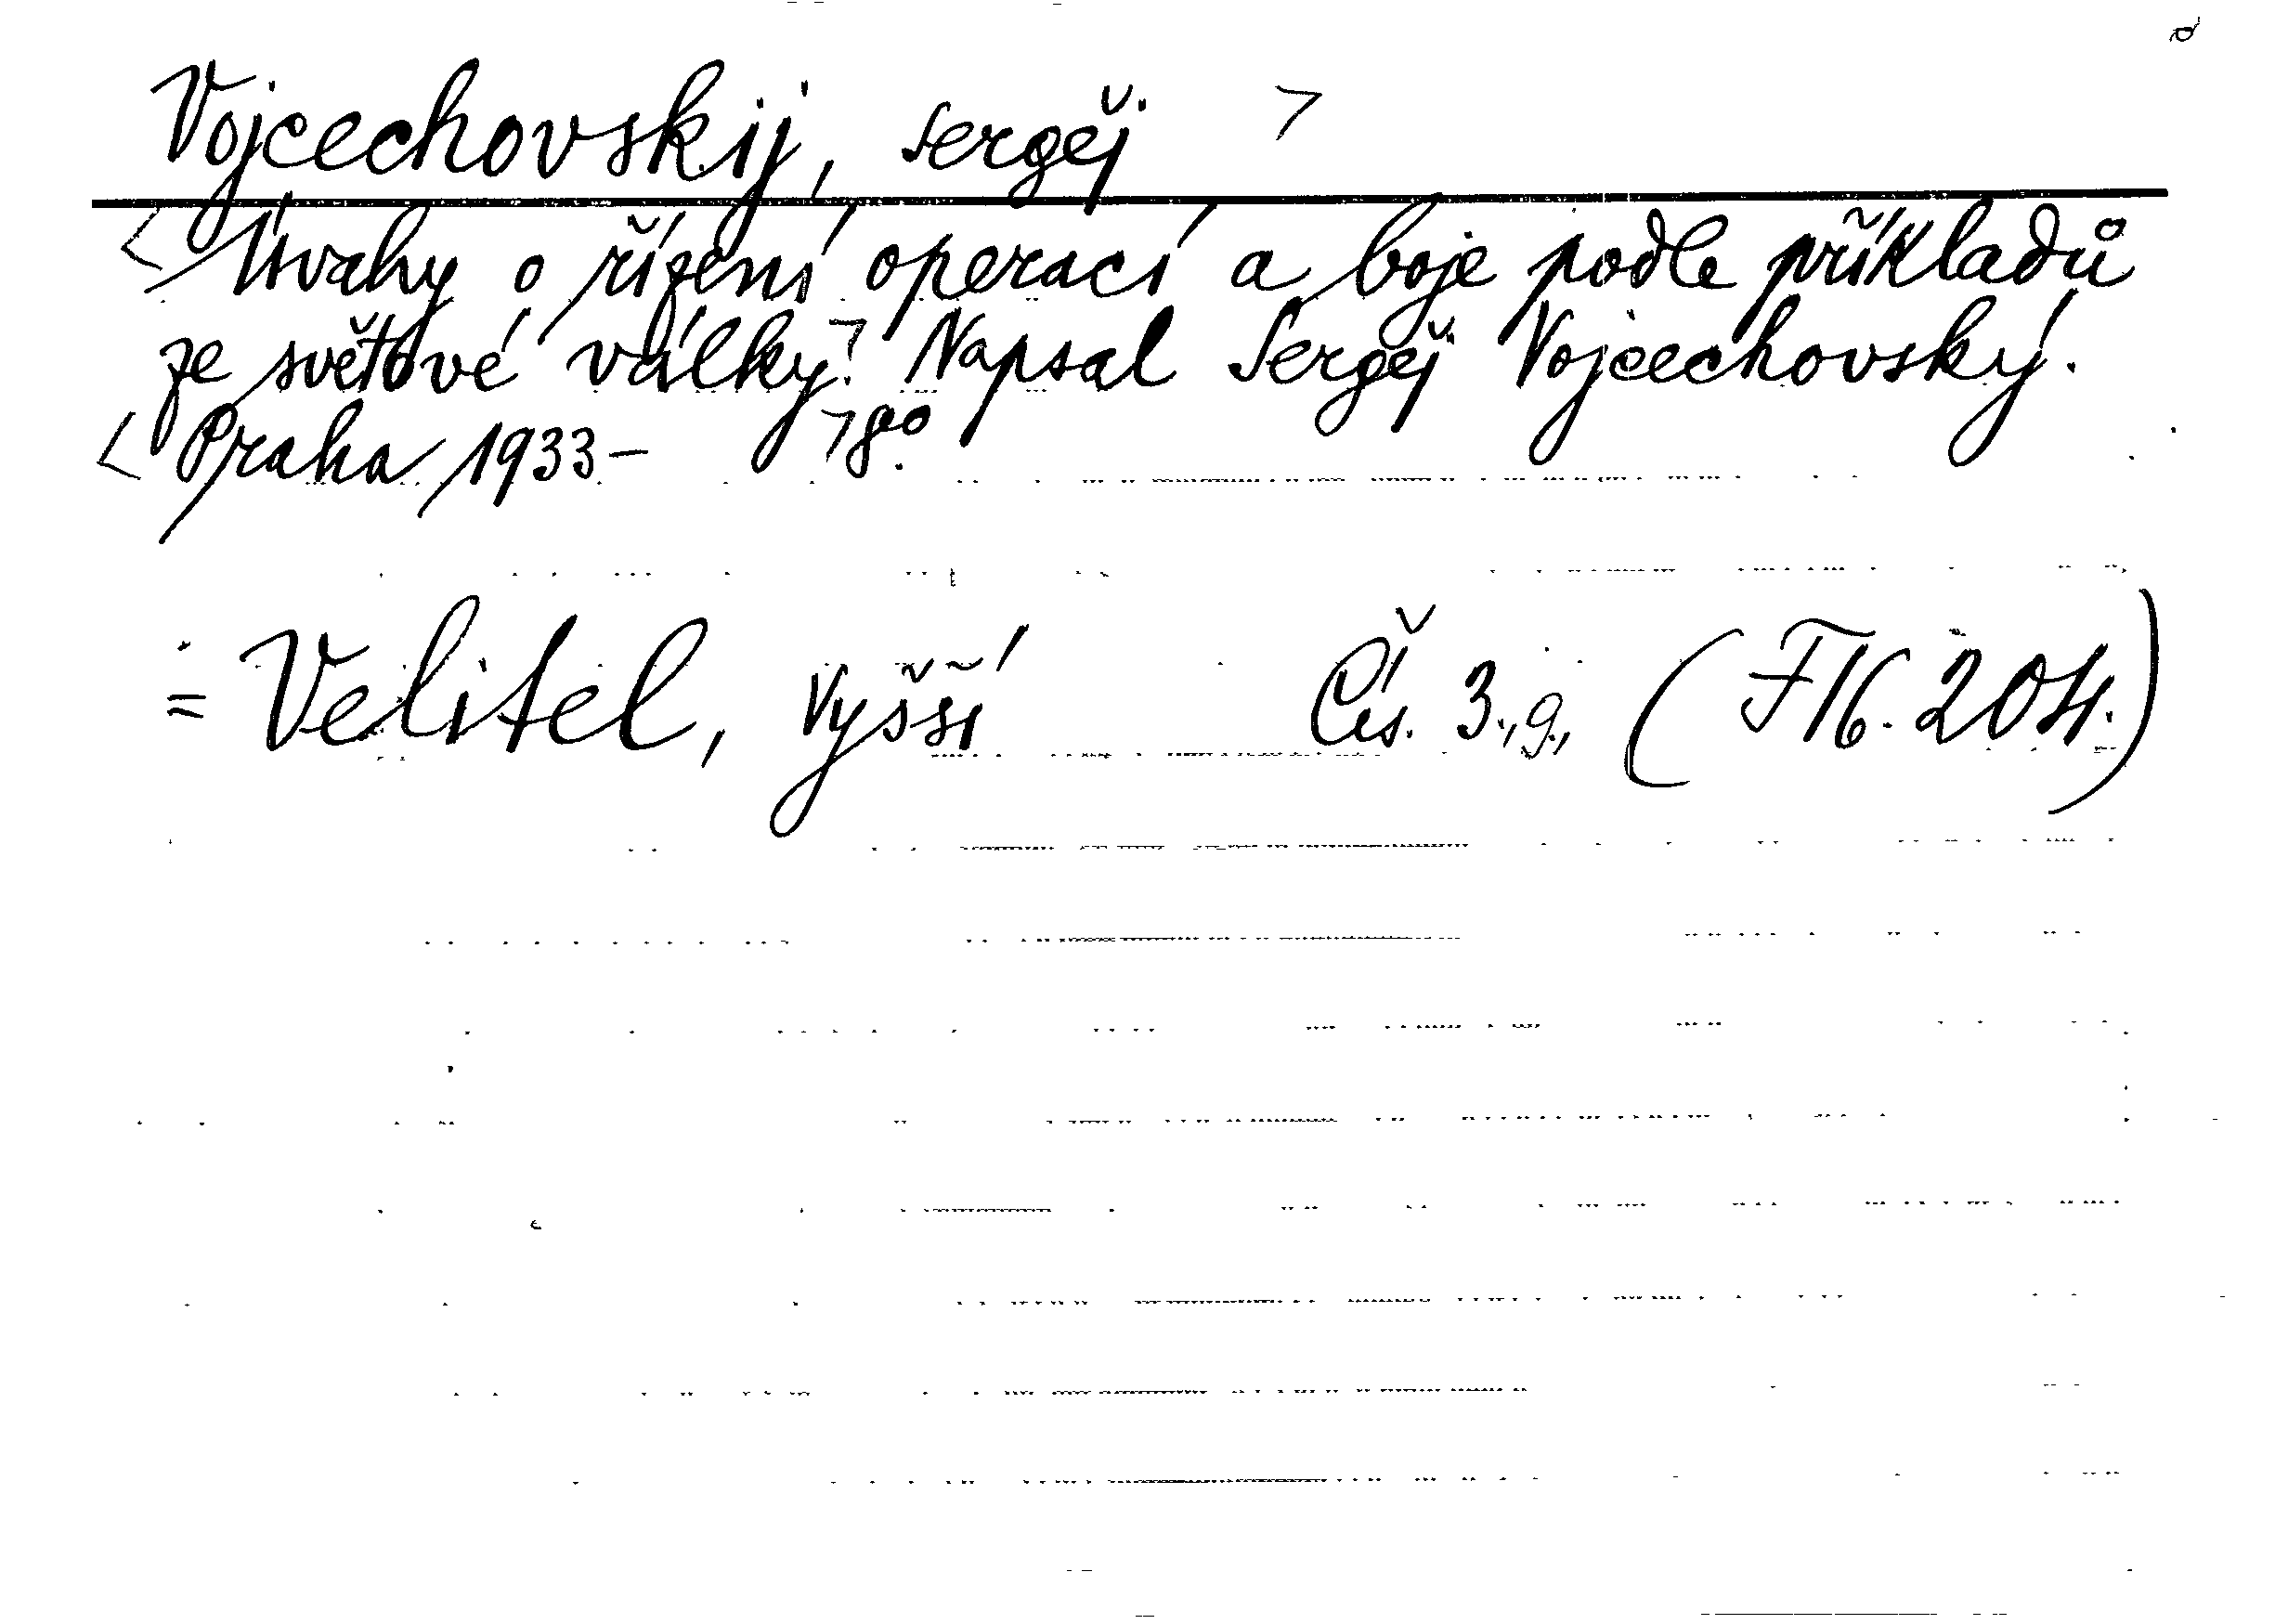 Vojcechovskij, Sergěj >
< Úvahy o řízení operací a boje podle příkladů
ze světové války.> Napsal Sergěj Vojcechovský.
< Praha 1933 - > 8°.
= Velitel, vyšší Čís. 3.,9., (F 16. 204.)